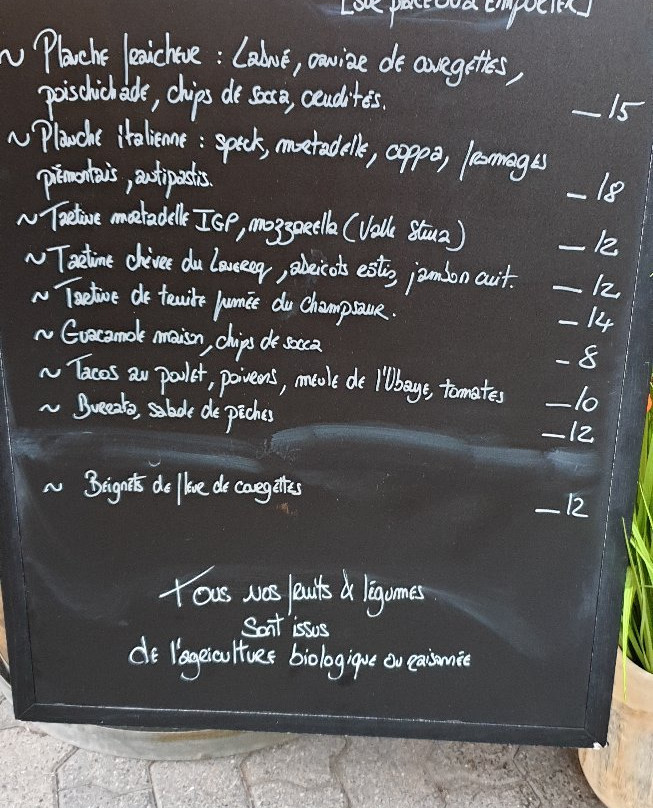 [sur place ou à emporter]
~ Planche fraîcheur : Labné, caviar de courgettes,
poischichade, chips de socca, crudités. _15
~ Planche italienne : speck, mortadelle, coppa, fromages
piémontais, antipastis. _18
~ Tartine mortadelle IGP, mozzarella (Valle Stura) _12
~ Tartine chèvre du Lavercq, abricots rôtis, jambon cuit. _12
~ Tartine de truite fumée du Champsaur. _14
~ Guacamole maison, chips de socca _8
~ Tacos au poulet, poivrons, meule de l'Ubaye, tomates _10
~ Burrata, salade de pêches _12
~ Beignets de fleur de courgettes _12
Tous nos fruits & légumes
Sont issus
de l'agriculture biologique ou raisonnée